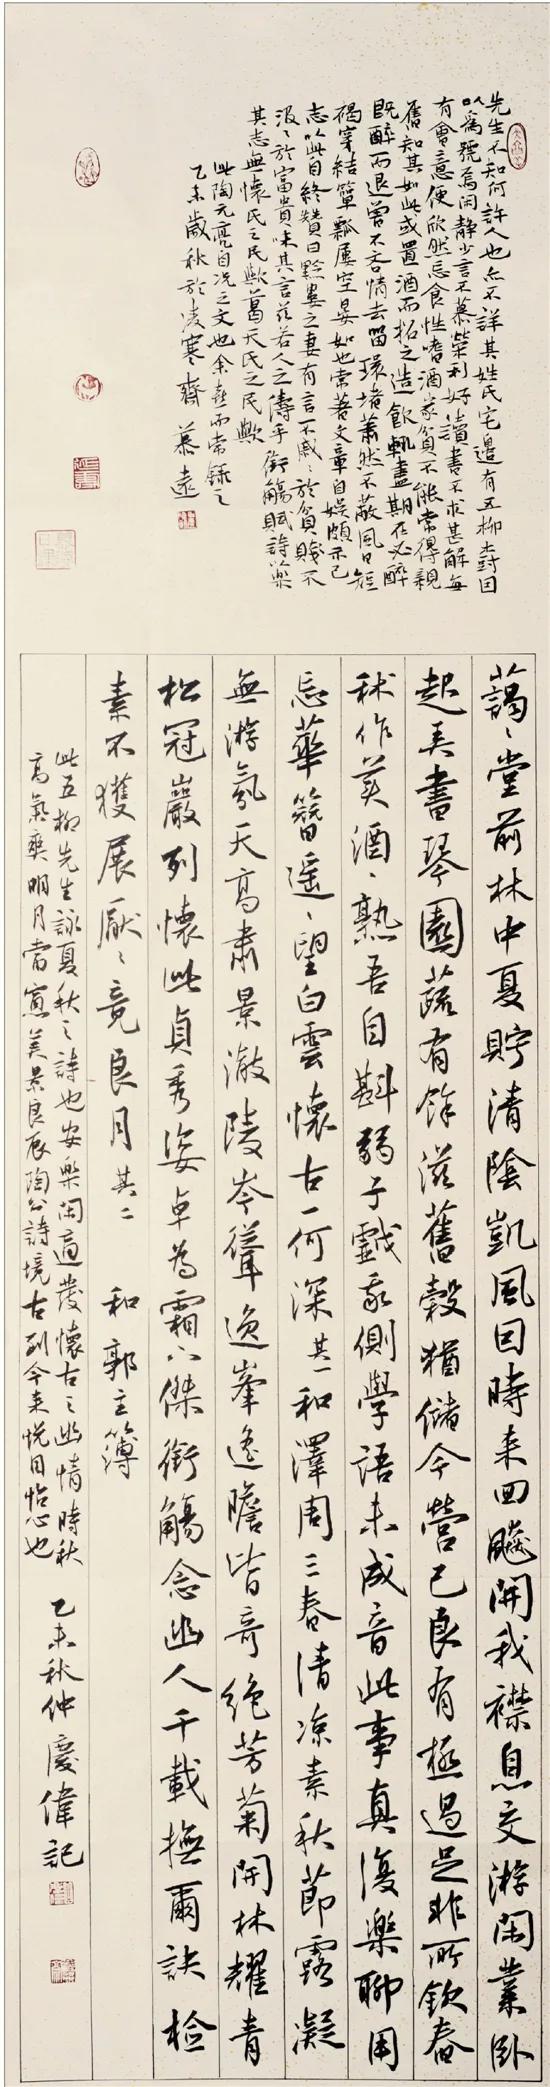 先生不知何許人也亦不詳其姓氏宅邊有五柳樹因
以為號焉閑靜少言不慕榮利好讀書不求甚解每
有會意便欣然忘食性嗜酒家貧不能常得親
舊知其如此或置酒而招之造飲輒盡期在必醉
既醉而退曾不吝情去留環堵蕭然不蔽風日短
褐穿結簞瓢屢空晏如也常著文章自娛頗示己
志以此自終贊曰黔婁之妻有言不戚〻於貧賤不
汲〻於富貴味其言茲若人之儔乎銜觴賦詩以樂
其志無懷氏之民歟葛天氏之民歟
此陶元亮自况之文也余喜而常錄之
乙未歲秋於凌寒齋 慕遠
藹〻堂前林中夏貯清陰凱風因時來回飈開我襟息交游閑業臥
起弄書琴園蔬有餘滋舊穀猶儲今營己良有極過足非所欽舂
秫作美酒〻熟吾自斟弱子戲我側學語未成音此事真復樂聊用
忘華簪遥〻望白雲懷古一何深 其一 和澤周三春清凉素秋節露凝
無游氛天高肅景澈陵岑聳逸峯遙瞻皆奇絶芳菊開林耀青
松冠巖列懷此貞秀姿卓為霜下傑銜觴念幽人千載撫爾訣檢
素不獲展厭〻竟良月 其二 和郭主簿
此五柳先生詠夏秋之詩也安樂閑適發懷古之幽情時秋
高氣爽明月當窗美景良辰陶公詩境古到今來悦目怡心也
乙未秋仲慶偉記